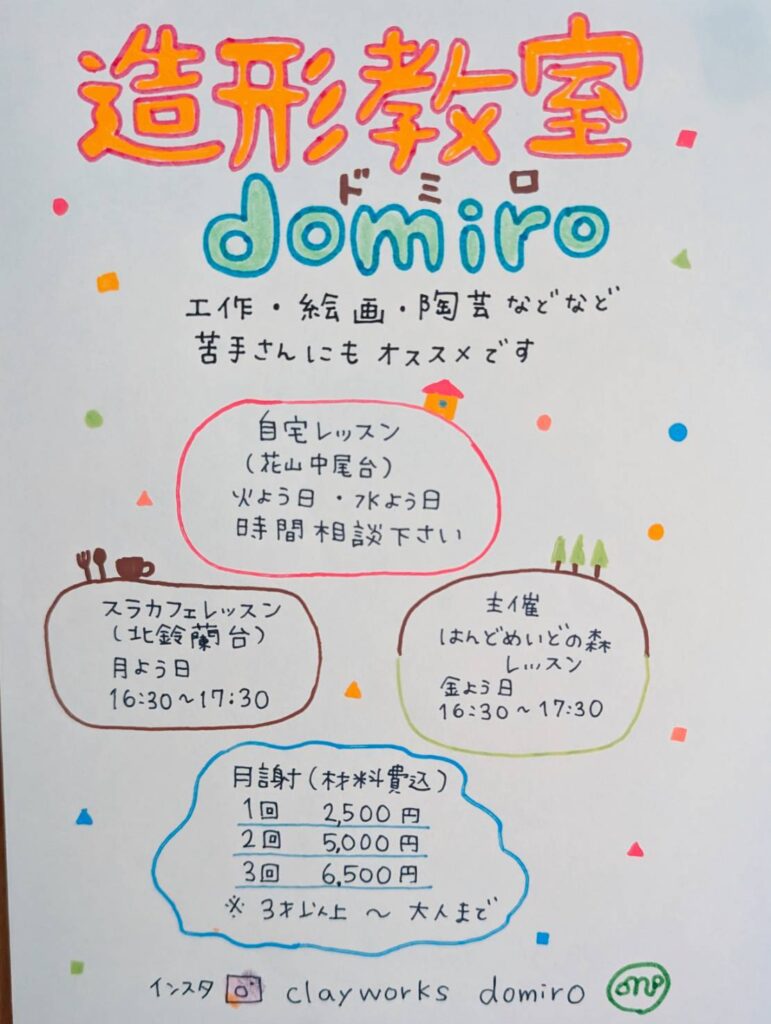 造形教室
ドミロ
domiro
工作・絵画・陶芸などなど
苦手さんにもオススメです
自宅レッスン
(花山中尾台)
火よう日・水よう日
時間相談下さい
スラカフェレッスン
(北鈴蘭台)
月よう日
16:30～17:30
主催
はんどめいどの森
レッスン
金よう日
16:30～17:30
月謝(材料費込)
1回 2,500円
2回 5,000円
3回 6,500円
※ 3才以上 ～ 大人まで
インスタ clayworks domiro